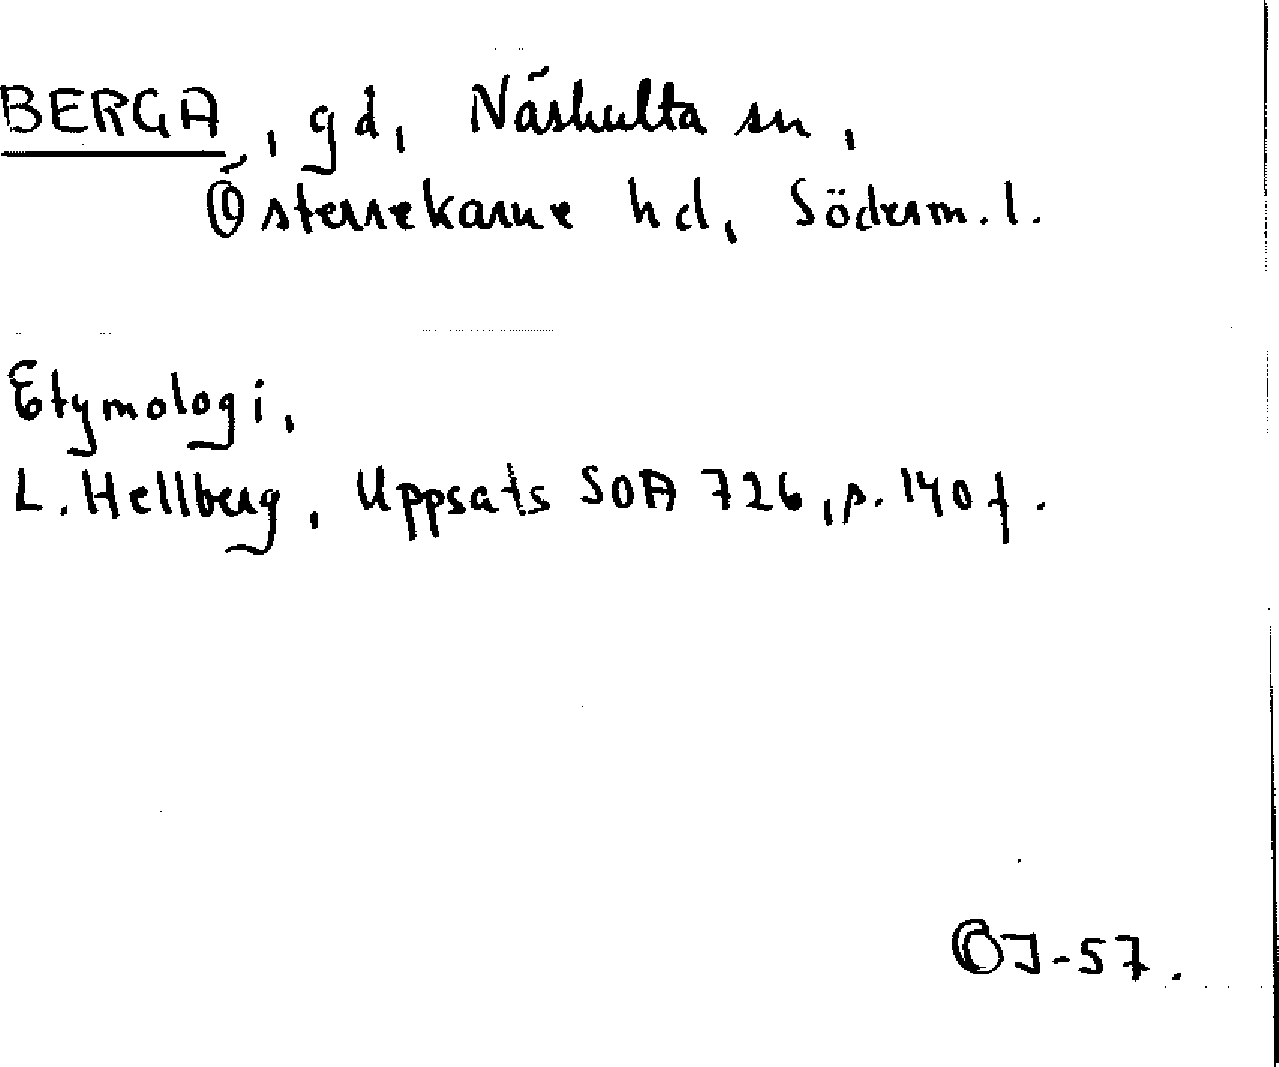 BERGA, gd, Näshulta sn,
Österrekarne hd, Söderm. l.
Etymologi,
L. Hellberg, Uppsats SOA 726, p. 140 f.
OJ-57.